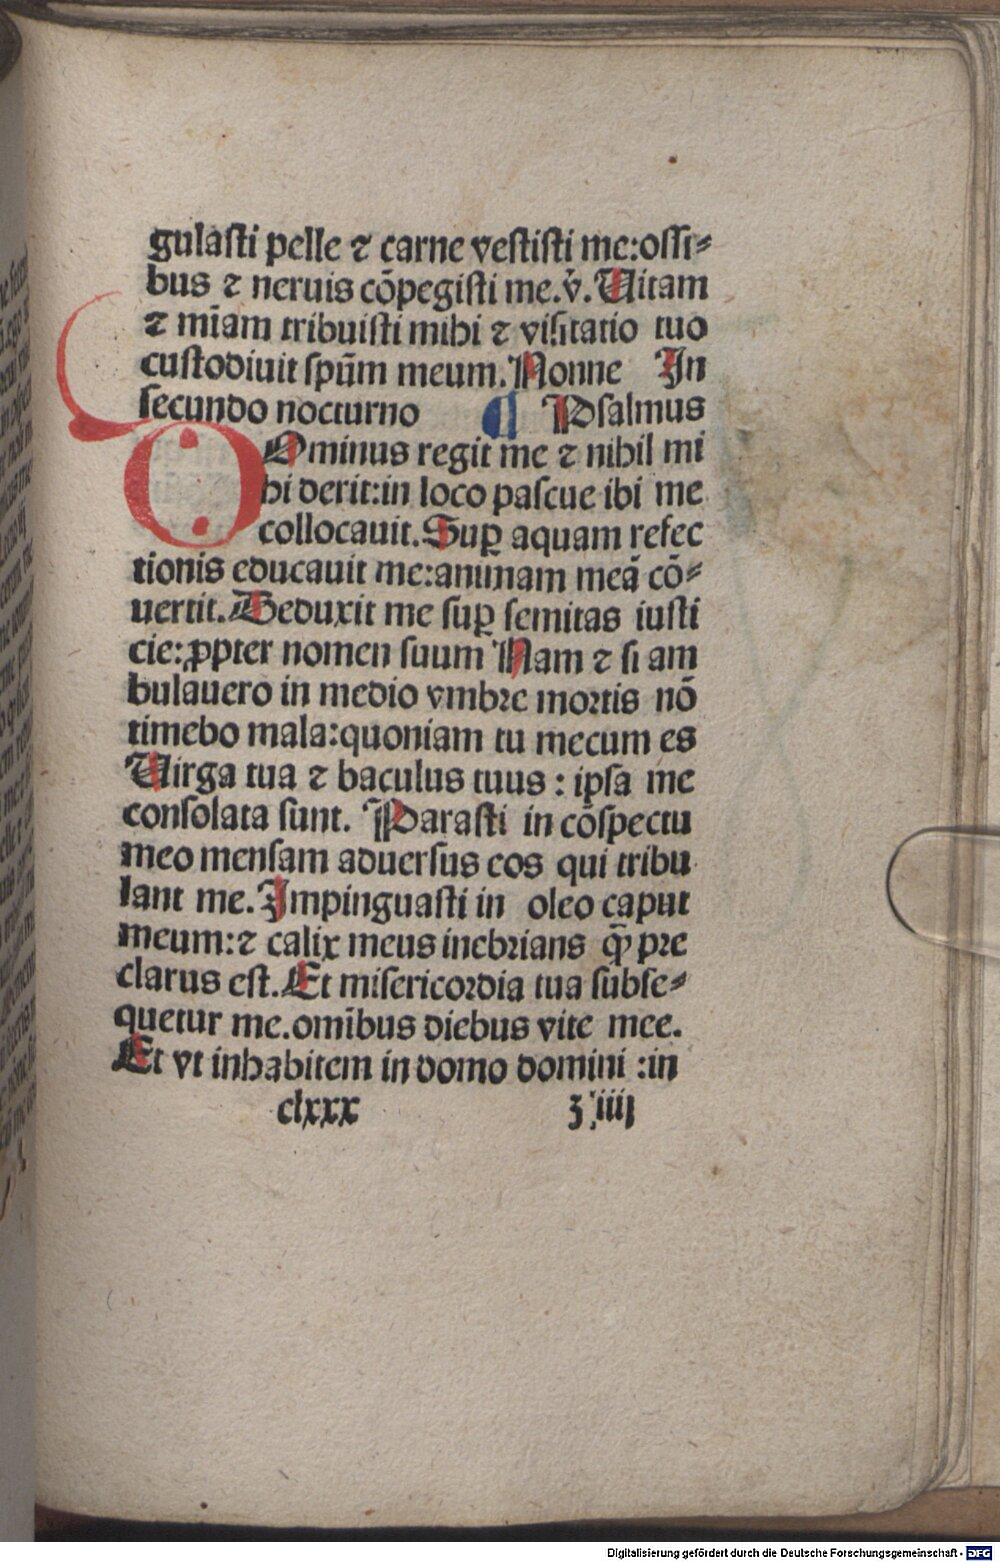 gulasti pelle ⁊ carne vestisti me:ossi⸗
bus ⁊ neruis cōpegisti me.v̇.Uitam
⁊ mīam tribuisti mihi ⁊ visitatio tuo
custodiuit spūm meum.Nonne In
secundo nocturno ¶ Psalmus
DOminus regit me ⁊ nihil mi
hi derit:in loco pascue ibi me
collocauit.Suꝑ aquam refec
tionis educauit me:animam meā cō⸗
uertit.Deduxit me suꝑ semitas iusti
cie:ꝓpter nomen suum Nam ⁊ si am
bulauero in medio vmbre mortis nō
timebo mala:quoniam tu mecum es
Uirga tua ⁊ baculus tuus : ipsa me
consolata sunt. Parasti in cōspectu
meo mensam aduersus eos qui tribu
lant me.Impinguasti in oleo caput
meum:⁊ calix meus inebrians q̄ʒ pre
clarus est.Et misericordia tua subse⸗
quetur me.omībus diebus vite mee.
Et vt inhabitem in domo domini :in
clxxx ʒ iiij
Digitalisierung gefördert durch die Deutsche Forschungsgemeinschaft - DFG